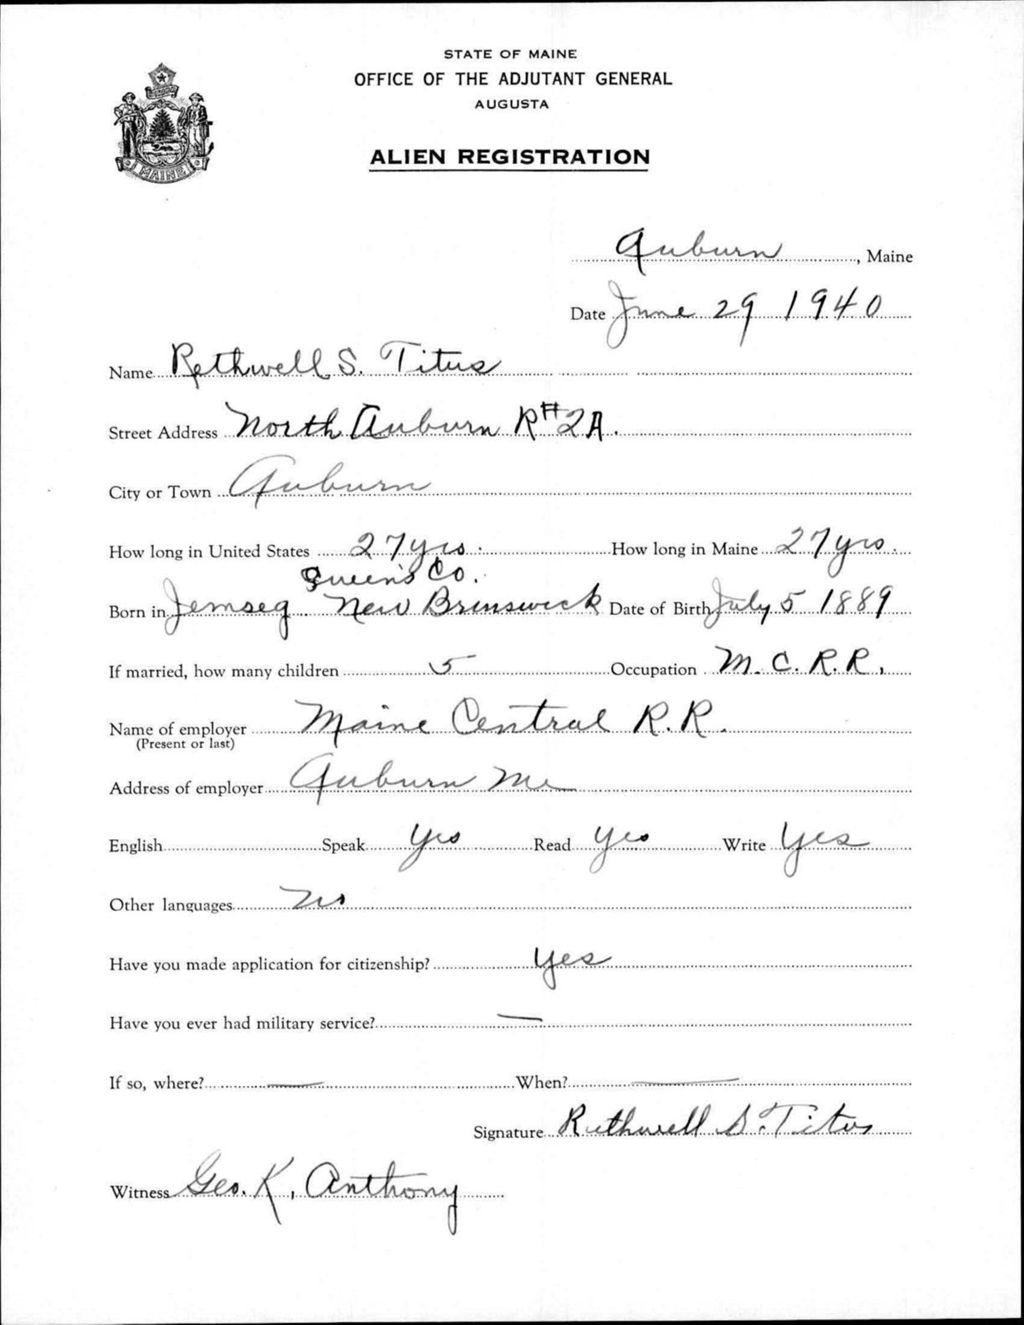 STATE OF MAINE
OFFICE OF THE ADJUTANT GENERAL
AUGUSTA
ALIEN REGISTRATION
MAINE
Auburn, Maine
Date June 29 1940
Name Rethwell S. Titus
Street Address North Auburn R#2A.
City or Town Auburn
How long in United States 27 yrs. How long in Maine 27 yrs.
Queen's Co.
Born in Jemseg New Brunswick Date of Birth July 5 1889
If married, how many children 5 Occupation M. C. R. R.
Name of employer Maine Central R. R.
(Present or last)
Address of employer Auburn Me
English Speak Yes Read Yes Write Yes
Other languages No
Have you made application for citizenship? Yes
Have you ever had military service? —
If so, where? — When? —
Signature Ruthwell S. Titus
Witness Geo. K. Anthony